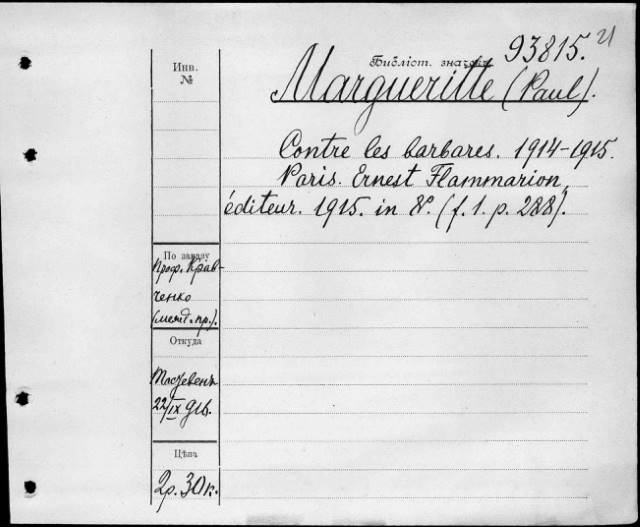 Библіот. значокъ 93815. 21
Инв.
№
Margueritte (Paul).
Contre les barbares. 1914-1915.
Paris. Ernest Flammarion,
éditeur. 1915. in 8º. (f. 1. p. 288).
По заказу
Проф. Крав-
ченко
(межд. пр.).
Откуда
22/IX 916.
Цѣна
2р. 30к.